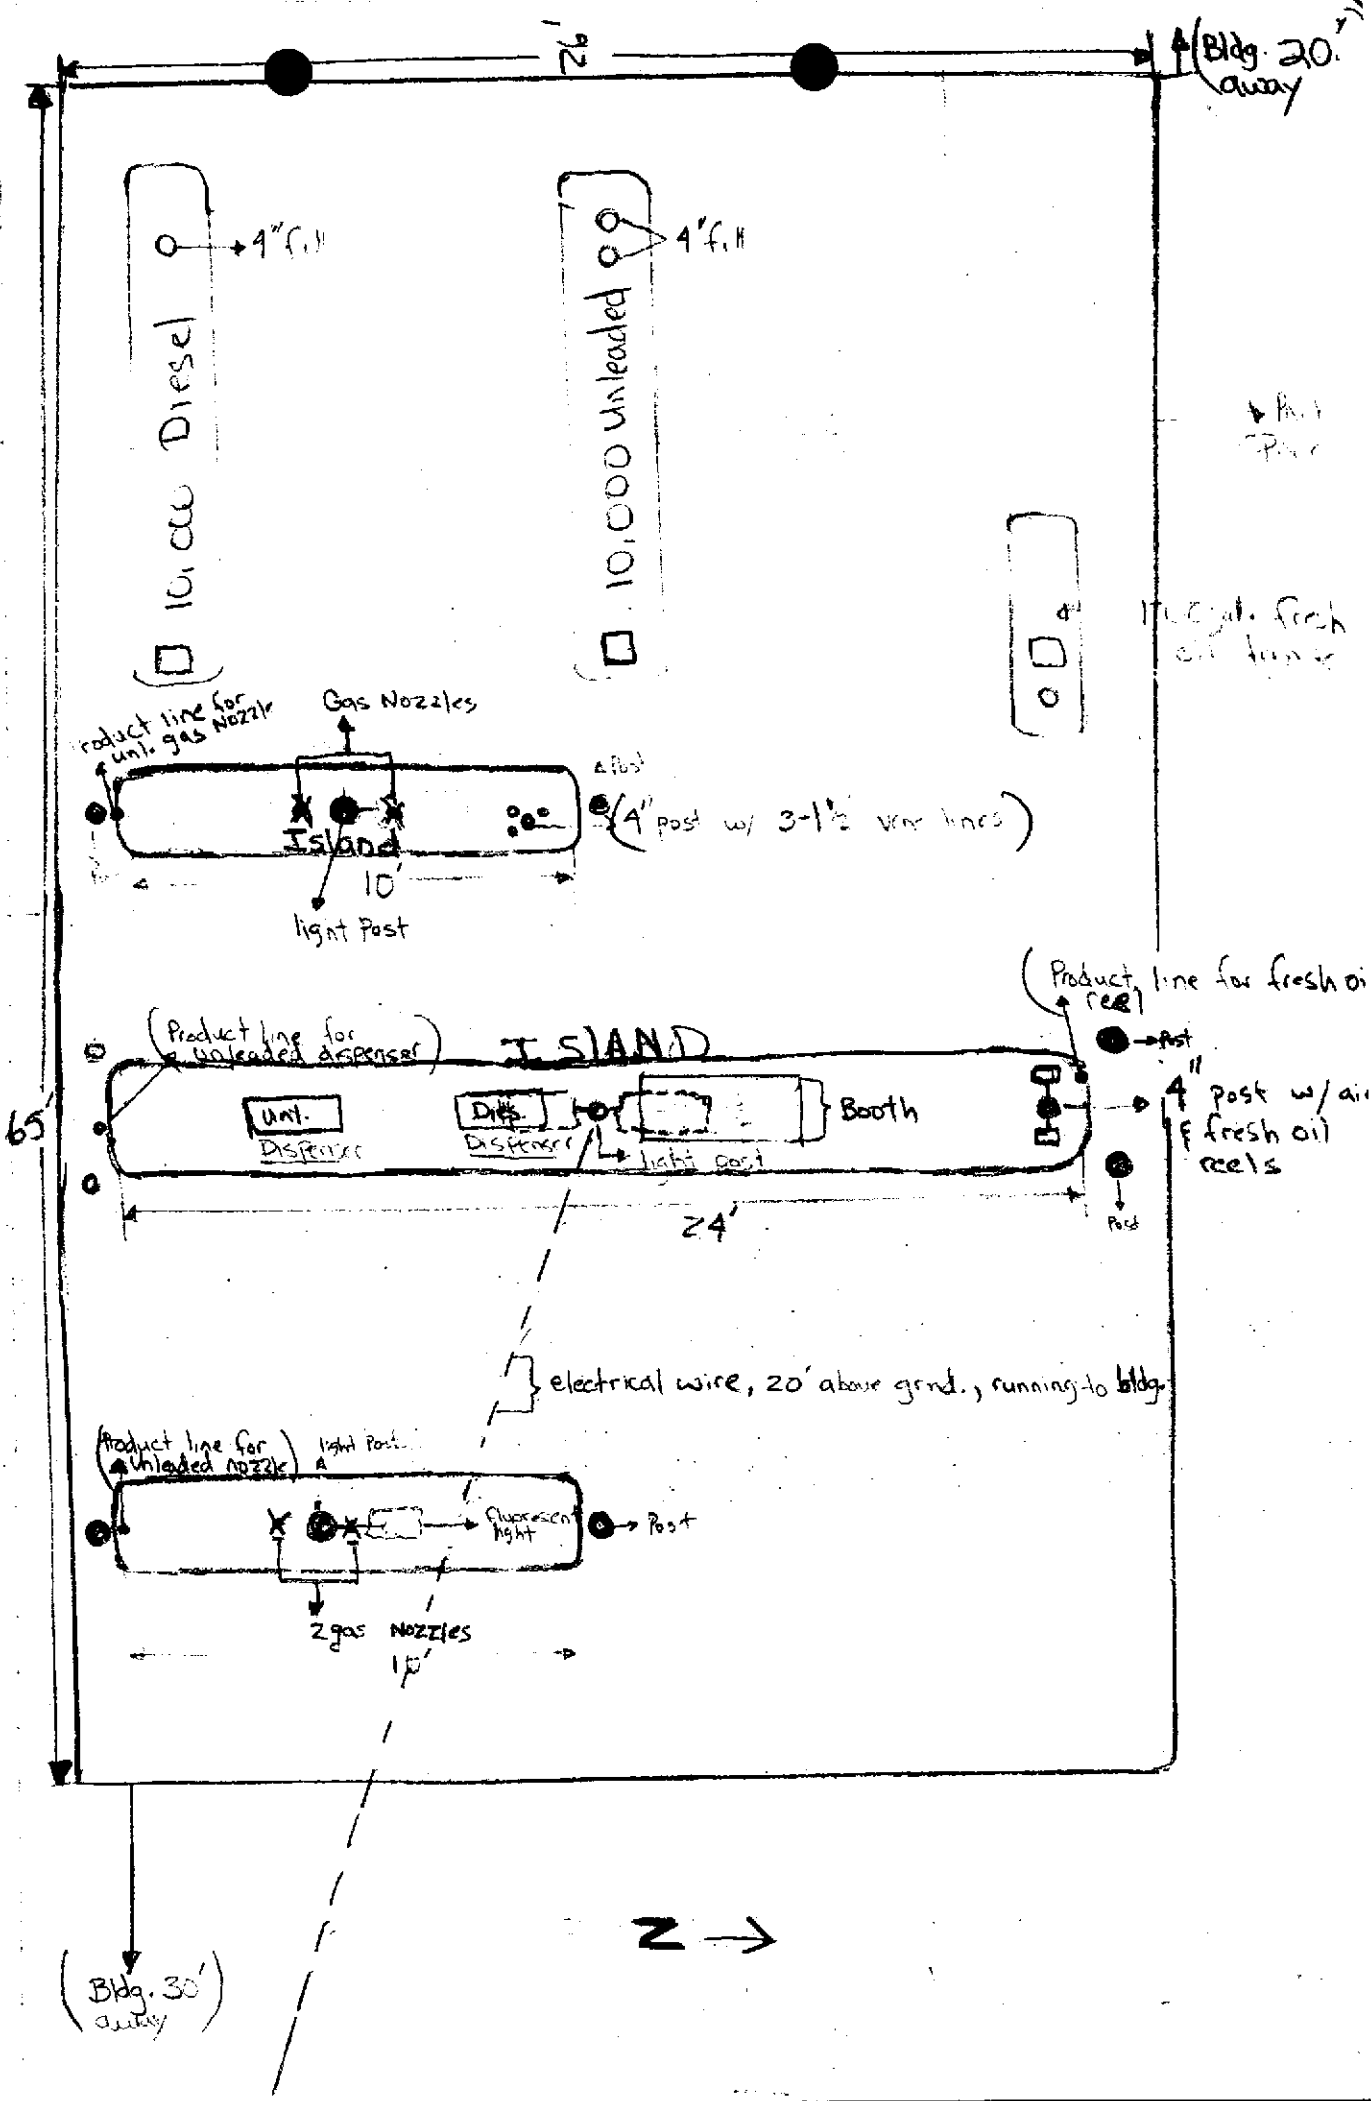 26'
(Bldg. 20'
away
4" fill
4" fill
10,000 Diesel
10,000 Unleaded
fresh
oil
Product line for
unl. gas Nozzle
Gas Nozzles
Post
(4" post w/ 3-1½ lines)
Island
10'
light Post
(Product line for fresh oi
reel
(Product line for
unleaded dispenser)
ISLAND
Post
65'
Unl.
Dispenser
Dies.
Dispenser
Booth
light post
4" post w/ air
& fresh oil
reels
24'
Post
electrical wire, 20' above grnd., running to bldg.
(Product line for
unleaded nozzle)
light Post
fluorescent
light
Post
2 gas Nozzles
10'
N →
(Bldg. 30'
away)